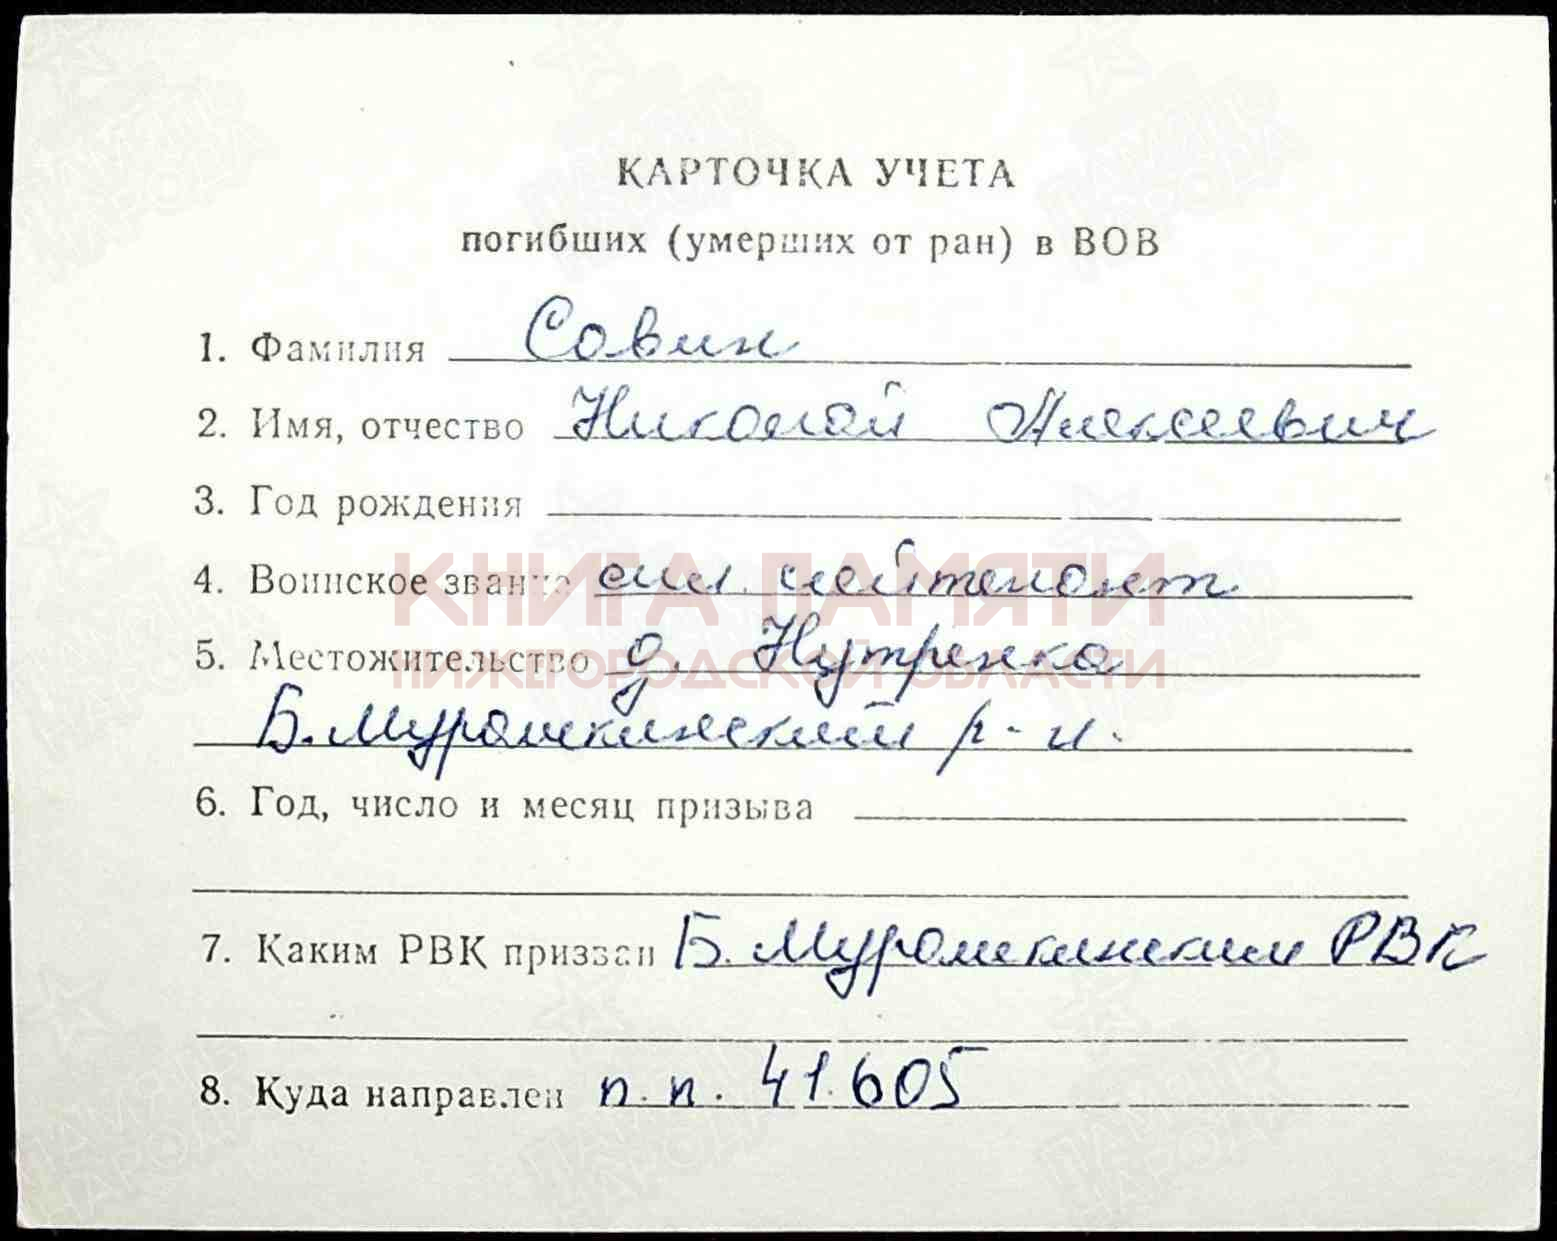 КАРТОЧКА УЧЕТА
погибших (умерших от ран) в ВОВ
1. Фамилия Совин
2. Имя, отчество Николай Алексеевич
3. Год рождения
4. Воинское звание мл. лейтенант
5. Местожительство д. Нутренка
Б. Мурашкинский р-н.
6. Год, число и месяц призыва
7. Каким РВК призван Б. Мурашкинским РВК
8. Куда направлен п.п. 41605
КНИГА ПАМЯТИ
НИЖЕГОРОДСКОЙ ОБЛАСТИ
ПАМЯТЬ НАРОДА